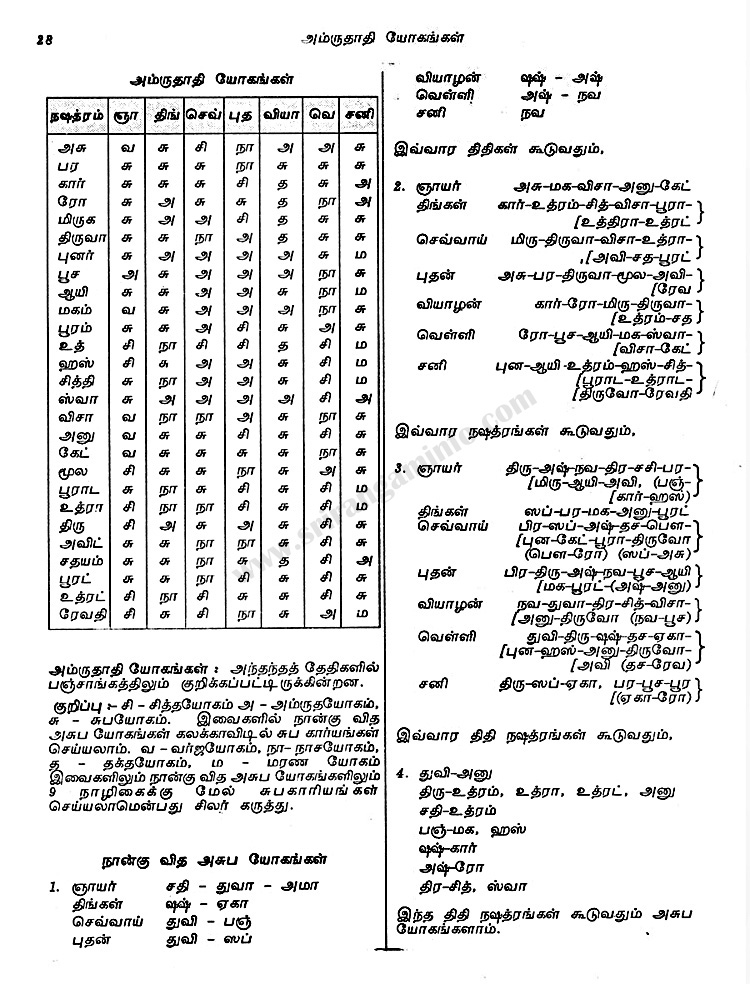 28
அம்ருதாதி யோகங்கள்
அம்ருதாதி யோகங்கள்
நஷத்ரம் ஞா திங் செவ் புத வியா வெ சனி
அசு வ சு சி நா அ அ சு
பர சு சு சு நா சு சு சு
கார் சு சு சு சி த சு அ
ரோ சு அ சு சு த நா அ
மிருக சு அ அ சி த சு சு
திருவா சு சு நா அ த சு சு
புனர் சு அ அ அ அ சு ம
பூச அ சு அ அ அ நா சு
ஆயி சு சு அ அ சு நா ம
மகம் வ சு அ அ அ நா சு
பூரம் சு சு அ சி சு அ சு
உத் சி நா சி சி த சி ம
ஹஸ் சி சு அ அ சு சி ம
சித்தி சு நா அ அ சு சி ம
ஸ்வா சு அ அ அ அ சி அ
விசா வ நா நா அ சு நா சு
அனு வ சு சி சி சு சி சு
கேட் வ சு சு சு சு நா சு
மூல சி சு சு நா சு அ சு
பூராட சு நா சி சு சு சி ம
உத்ரா சி நா சு சி சு சி ம
திரு சி அ சு அ சு சி சு
அவிட் சி சு நா நா சு சி சு
சதயம் சி சு நா சு த சி அ
பூரட் சி சு நா சி சு சி சு
உத்ரட் சி நா சு சி சு சி சு
ரேவதி சி சு சி நா சு அ ம
அம்ருதாதி யோகங்கள் : அந்தந்தத் தேதிகளில்
பஞ்சாங்கத்திலும் குறிக்கப்பட்டிருக்கின்றன.
குறிப்பு :- சி - சித்தயோகம் அ - அம்ருதயோகம்,
சு - சுபயோகம். இவைகளில் நான்கு வித
அசுப யோகங்கள் கலக்காவிடில் சுப கார்யங்கள்
செய்யலாம். வ - வர்ஜயோகம், நா- நாசயோகம்,
த - தக்தயோகம், ம - மரண யோகம்
இவைகளிலும் நான்கு வித அசுப யோகங்களிலும்
9 நாழிகைக்கு மேல் சுபகாரியங்கள்
செய்யலாமென்பது சிலர் கருத்து.
நான்கு வித அசுப யோகங்கள்
1. ஞாயர் சதி - துவா - அமா
திங்கள் ஷஷ் - ஏகா
செவ்வாய் துவி - பஞ்
புதன் துவி - ஸப்
வியாழன் ஷஷ் - அஷ்
வெள்ளி அஷ் - நவ
சனி நவ
இவ்வார திதிகள் கூடுவதும்,
2. ஞாயர் அசு-மக-விசா-அனு-கேட்
திங்கள் கார்-உத்ரம்-சித்-விசா-பூரா-
[உத்திரா-உத்ரட்
செவ்வாய் மிரு-திருவா-விசா-உத்ரா-
[அவி-சத-பூரட்
புதன் அசு-பர-திருவா-மூல-அவி-
[ரேவ
வியாழன் கார்-ரோ-மிரு-திருவா-
[உத்ரம்-சத
வெள்ளி ரோ-பூச-ஆயி-மக-ஸ்வா-
[விசா-கேட்
சனி புன-ஆயி-உத்ரம்-ஹஸ்-சித்-
[பூராட-உத்ராட-
[திருவோ-ரேவதி
இவ்வார நஷத்ரங்கள் கூடுவதும்,
3. ஞாயர் திரு-அஷ்-நவ-திர-சசி-பர-
[மிரு-ஆயி-அவி, (பஞ்-
[கார்-ஹஸ்)
திங்கள் ஸப்-பர-மக-அனு-பூரட்
செவ்வாய் பிர-ஸப்-அஷ்-தச-பௌ-
[புன-கேட்-பூரா-திருவோ
(பௌ-ரோ) (ஸப்-அசு)
புதன் பிர-திரு-அஷ்-நவ-பூச-ஆயி
[மக-பூரட்-(அஷ்-அனு)
வியாழன் நவ-துவா-திர-சித்-விசா-
[அனு-திருவோ (நவ-பூச)
வெள்ளி துவி-திரு-ஷஷ்-தச-ஏகா-
[புன-ஹஸ்-அனு-திருவோ-
[அவி (தச-ரேவ)
சனி திரு-ஸப்-ஏகா, பர-பூச-பூர
[(ஏகா-ரோ)
இவ்வார திதி நஷத்ரங்கள் கூடுவதும்,
4. துவி-அனு
திரு-உத்ரம், உத்ரா, உத்ரட், அனு
சதி-உத்ரம்
பஞ்-மக, ஹஸ்
ஷஷ்-கார்
அஷ்-ரோ
திர-சித், ஸ்வா
இந்த திதி நஷத்ரங்கள் கூடுவதும் அசுப
யோகங்களாம்.
www.srirangaminfo.com